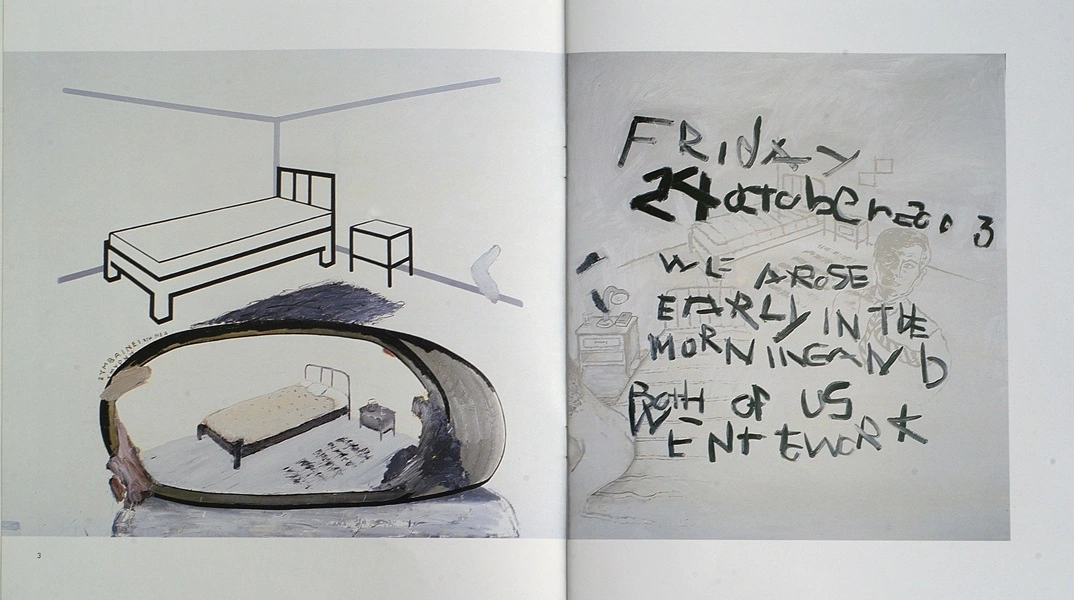 FRIdAY
24 octoberzoo 3
WE AROSE
EARLY IN THE
MORNINGAND
BOTH OF US
WENT tWORK
3